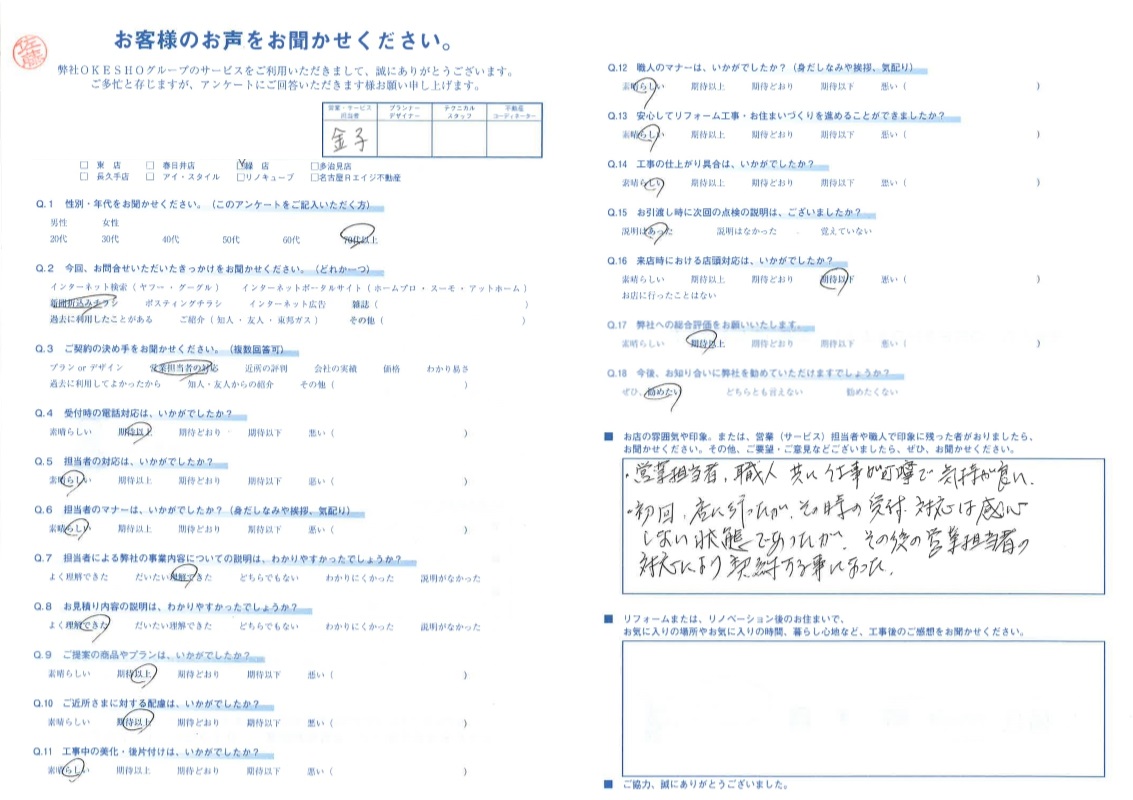 佐藤
お客様のお声をお聞かせください。
弊社OKESHOグループのサービスをご利用いただきまして、誠にありがとうございます。
ご多忙と存じますが、アンケートにご回答いただきます様お願い申し上げます。
営業・サービス担当者 プランナーデザイナー テクニカルスタッフ 不動産コーディネーター
金子
□ 東 店 □ 春日井店 ☑緑 店 □多治見店
□ 長久手店 □ アイ・スタイル □リノキューブ □名古屋Rエイジ不動産
Q.1 性別・年代をお聞かせください。（このアンケートをご記入いただく方）
男性 女性
20代 30代 40代 50代 60代 70代以上
Q.2 今回、お問合せいただいたきっかけをお聞かせください。（どれか一つ）
インターネット検索（ヤフー・グーグル） インターネットポータルサイト（ホームプロ・スーモ・アットホーム）
新聞折込みチラシ ポスティングチラシ インターネット広告 雑誌（ ）
過去に利用したことがある ご紹介（知人・友人・東邦ガス） その他（ ）
Q.3 ご契約の決め手をお聞かせください。（複数回答可）
プラン or デザイン 営業担当者の対応 近所の評判 会社の実績 価格 わかり易さ
過去に利用してよかったから 知人・友人からの紹介 その他（ ）
Q.4 受付時の電話対応は、いかがでしたか？
素晴らしい 期待以上 期待どおり 期待以下 悪い（ ）
Q.5 担当者の対応は、いかがでしたか？
素晴らしい 期待以上 期待どおり 期待以下 悪い（ ）
Q.6 担当者のマナーは、いかがでしたか？（身だしなみや挨拶、気配り）
素晴らしい 期待以上 期待どおり 期待以下 悪い（ ）
Q.7 担当者による弊社の事業内容についての説明は、わかりやすかったでしょうか？
よく理解できた だいたい理解できた どちらでもない わかりにくかった 説明がなかった
Q.8 お見積り内容の説明は、わかりやすかったでしょうか？
よく理解できた だいたい理解できた どちらでもない わかりにくかった 説明がなかった
Q.9 ご提案の商品やプランは、いかがでしたか？
素晴らしい 期待以上 期待どおり 期待以下 悪い（ ）
Q.10 ご近所さまに対する配慮は、いかがでしたか？
素晴らしい 期待以上 期待どおり 期待以下 悪い（ ）
Q.11 工事中の美化・後片付けは、いかがでしたか？
素晴らしい 期待以上 期待どおり 期待以下 悪い（ ）
Q.12 職人のマナーは、いかがでしたか？（身だしなみや挨拶、気配り）
素晴らしい 期待以上 期待どおり 期待以下 悪い（ ）
Q.13 安心してリフォーム工事・お住まいづくりを進めることができましたか？
素晴らしい 期待以上 期待どおり 期待以下 悪い（ ）
Q.14 工事の仕上がり具合は、いかがでしたか？
素晴らしい 期待以上 期待どおり 期待以下 悪い（ ）
Q.15 お引渡し時に次回の点検の説明は、ございましたか？
説明はあった 説明はなかった 覚えていない
Q.16 来店時における店頭対応は、いかがでしたか？
素晴らしい 期待以上 期待どおり 期待以下 悪い（ ）
お店に行ったことはない
Q.17 弊社への総合評価をお願いいたします。
素晴らしい 期待以上 期待どおり 期待以下 悪い（ ）
Q.18 今後、お知り合いに弊社を勧めていただけますでしょうか？
ぜひ、勧めたい どちらとも言えない 勧めたくない
■ お店の雰囲気や印象。または、営業（サービス）担当者や職人で印象に残った者がおりましたら、
お聞かせください。その他、ご要望・ご意見などございましたら、ぜひ、お聞かせください。
・営業担当者、職人共に仕事が叮嚀で気持が良い。
・初回、店に行ったが、その時の受付対応は感心
しない状態であったが、その後の営業担当者の
対応により契約する事になった。
■ リフォームまたは、リノベーション後のお住まいで、
お気に入りの場所やお気に入りの時間、暮らし心地など、工事後のご感想をお聞かせください。
■ ご協力、誠にありがとうございました。